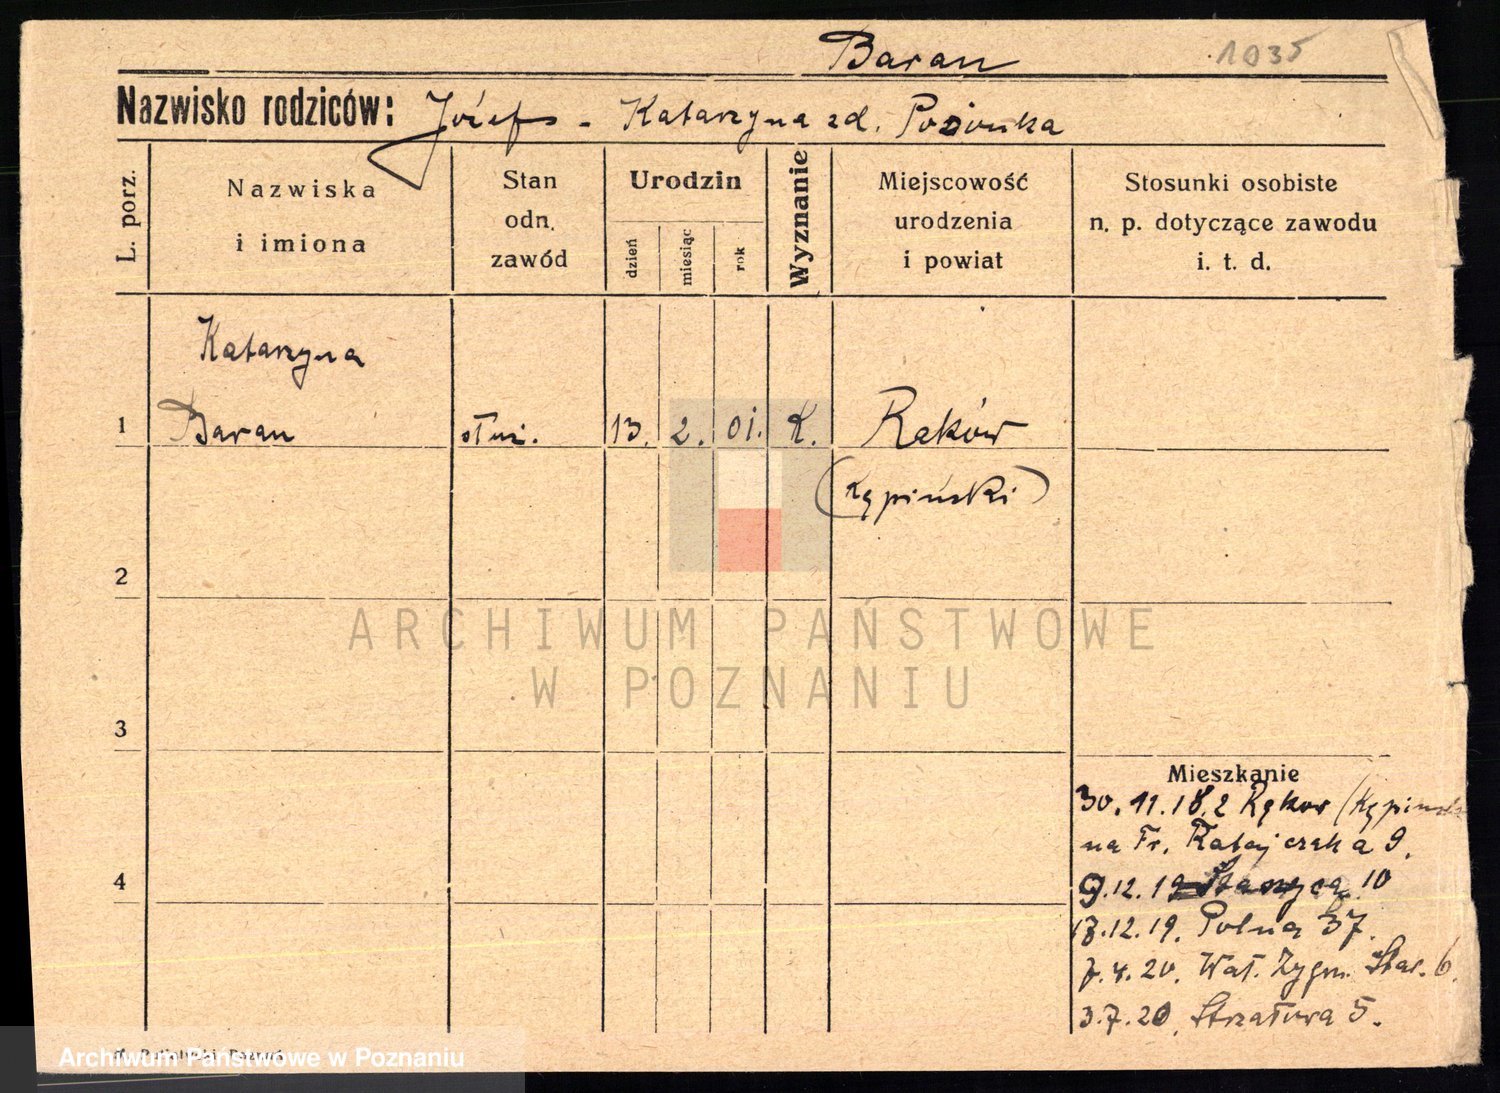 Baran 1035
Nazwisko rodziców: Józefs - Katarzyna zd.
L. porz.
Nazwiska
i imiona
Stan
odn.
zawód
Urodzin
dzień
miesiąc
rok
Wyznanie
Miejscowość
urodzenia
i powiat
Stosunki osobiste
n. p. dotyczące zawodu
i. t. d.
Katarzyna
1 Baran służ. 13. 2. 01. K. Raków
(Kępiński)
2
ARCHIWUM PAŃSTWOWE
W POZNANIU
3
Mieszkanie
30.11.18. z Rąkow (Kępinsk
na Fr. Ratajczaka 9.
4
9.12.19 10
12.19. Polna 37.
7.4.20. Wał. Zygm. Star. 6.
3.7.20. Strzałowa 5.
Archiwum Państwowe w Poznaniu